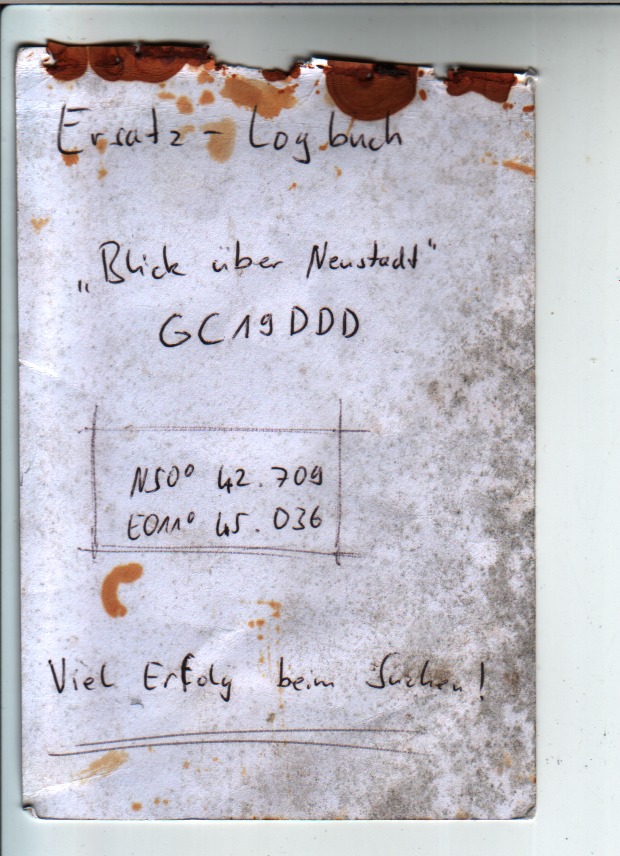 Ersatz - Logbuch
„Blick über Neustadt"
GC19DDD
N50° 42.709
E011° 45.036
Viel Erfolg beim Suchen!